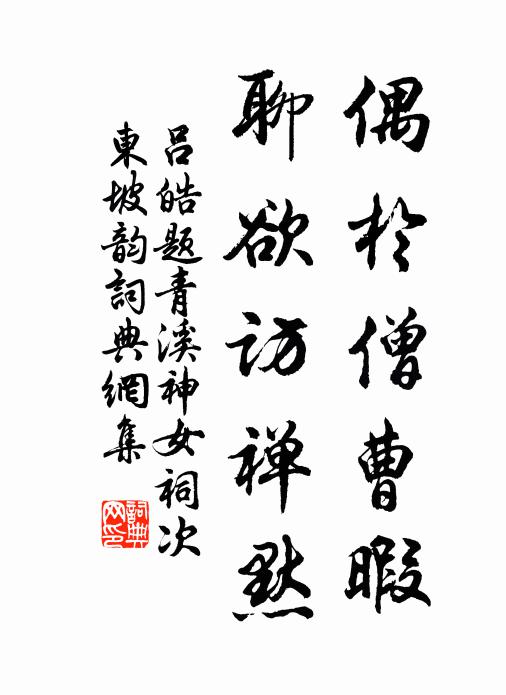 偶於僧曹暇
聊欲访禅默
吕皓题青溪神女祠次
東坡韵詞典網集
詞典网印